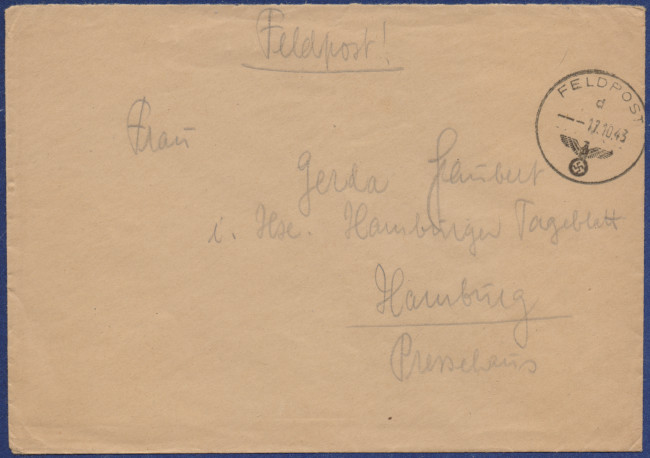 Feldpost!
FELDPOST
d
--- 17.10.43
Frau
Gerda Gaubert
i. Hse. Hamburger Tageblatt
Hamburg
Pressehaus